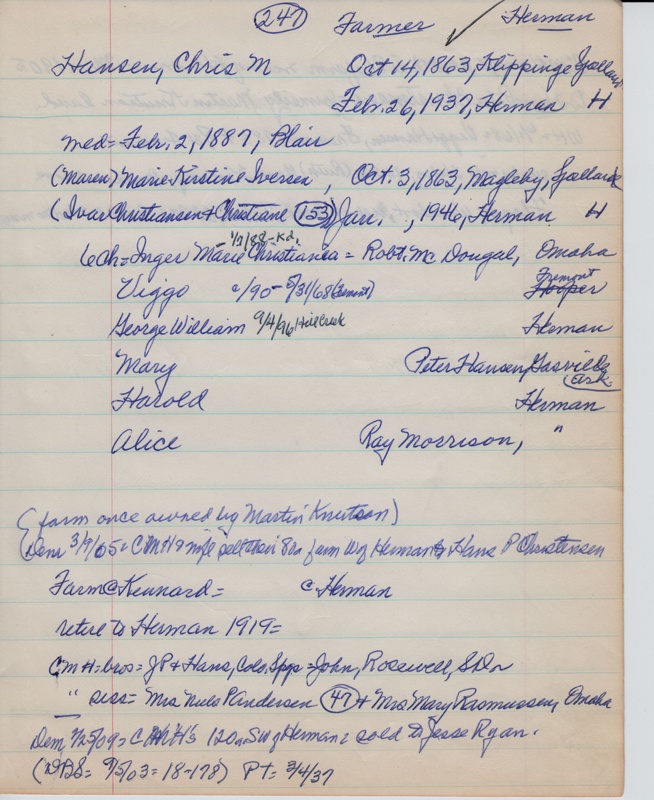 247 Farmer ✓ Herman
Hansen, Chris M Oct 14, 1863, Klippinge Sjælland
Febr. 26, 1937, Herman H
med= Febr. 2, 1887, Blair
(Maren) Marie Kirstine Iversen, Oct. 3, 1863, Magleby, Sjælland
(Ivar Christiansen + Christiane 153) Jan. , 1946, Herman H
1/1/88-K2.
6ch= Inger Marie Christiania = Robt. McDougal, Omaha
Viggo c/90 - 5/31/68 (Fremont) Fremont Hooper
George William 9/4/96 Hill Creek Herman
Mary Peter Hansen, Gasville Ark.
Harold Herman
Alice Ray Morrison, "
(farm once owned by Martin Knutson)
(Dem 3/9/05= CMH + wife sell their 80a farm W of Herman to Hans P Christensen
Farm @ Kennard= c Herman
retire to Herman 1919=
CMH= bros= JP + Hans, Colo. Spgs = John, Rosewell, S.D
" siss= Mrs Niels P Andersen 47 + Mrs Mary Rasmussen, Omaha
Dem, 1/25/09= CMH's 120a SW of Herman= sold to Jesse Ryan.
(DBS= 9/5/03=18-178) PT= 3/4/37